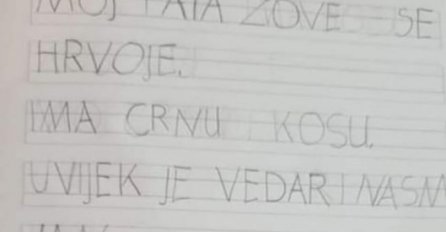 MOJ TATA ZOVE SE
HRVOJE.
IMA CRNU KOSU.
UVIJEK JE VEDAR I NASM